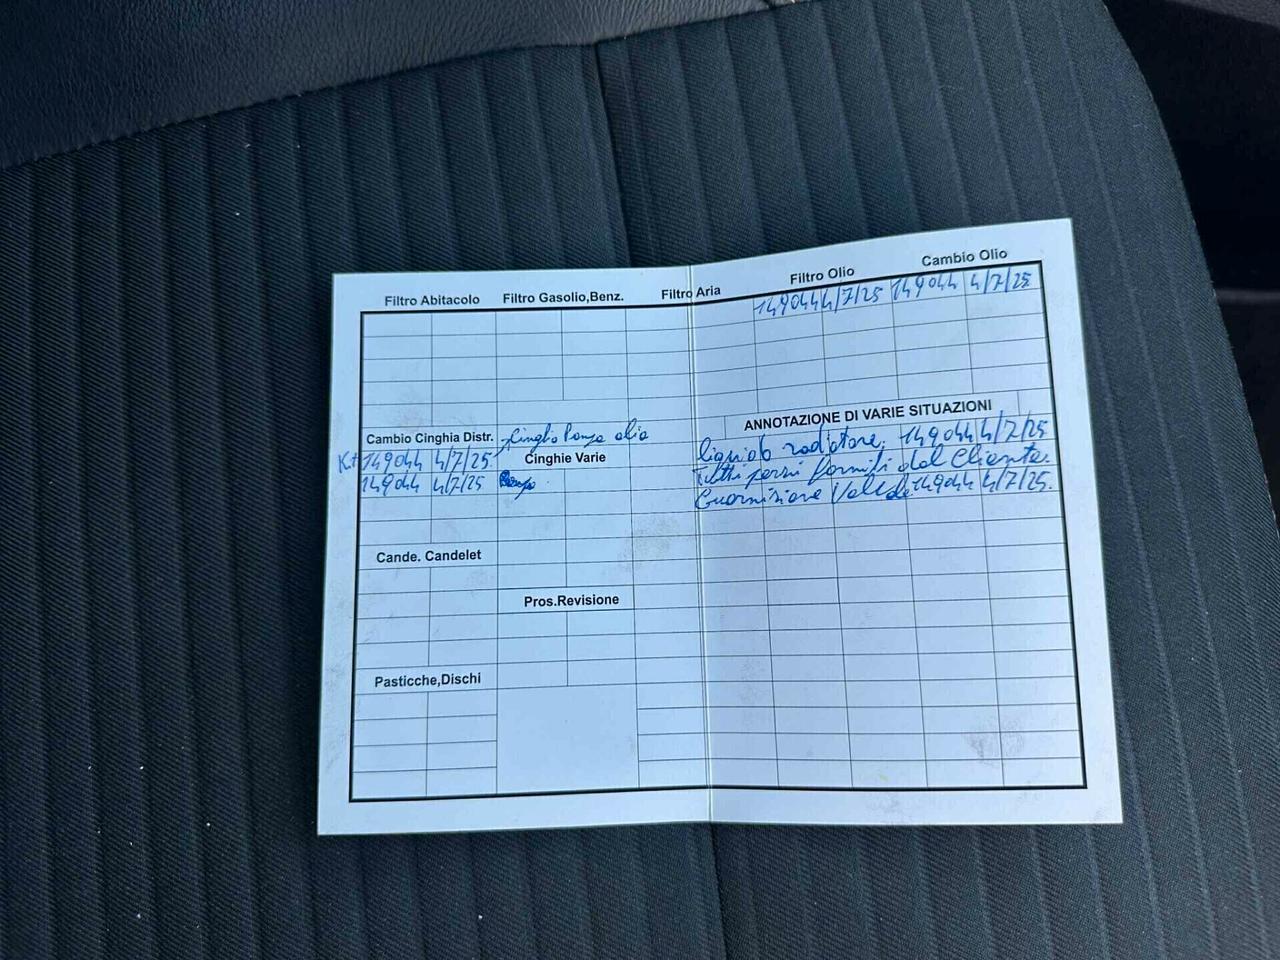 Filtro Abitacolo Filtro Gasolio,Benz. Filtro Aria Filtro Olio Cambio Olio
149044 4/7/25 149044 4/7/25
ANNOTAZIONE DI VARIE SITUAZIONI
Cambio Cinghia Distr. Cinghia Pompa olio
liquido radiatore. 149044 4/7/25
Kit 149044 4/7/25 Cinghie Varie
Tutti pezzi forniti dal Cliente.
149044 4/7/25
Guarnizione 149044 4/7/25.
Cande. Candelet
Pros.Revisione
Pasticche,Dischi